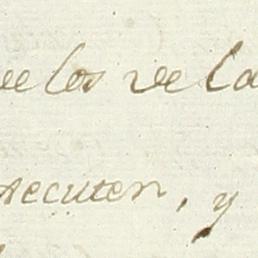 de los de la
secuten, y